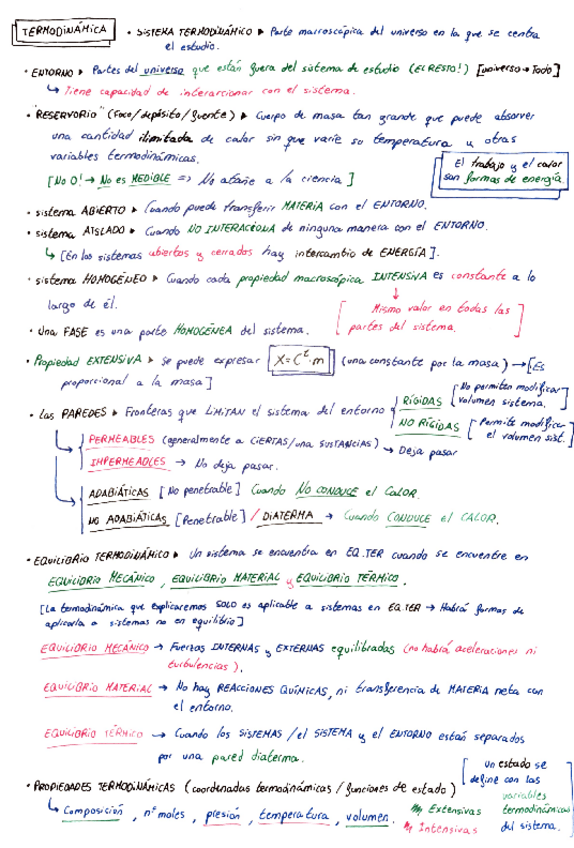 TERMODINÁMICA · SISTEMA TERMODINÁMICO ▶ Parte macroscópica del universo en la que se centra
el estudio.
· ENTORNO ▶ Partes del universo que están fuera del sistema de estudio (EL RESTO!) [universo → Todo]
↳ Tiene capacidad de interaccionar con el sistema.
· "RESERVORIO" (foco/depósito/fuente) ▶ Cuerpo de masa tan grande que puede absorver
una cantidad ilimitada de calor sin que varíe su temperatura u otras
variables termodinámicas.
[No O! → No es MEDIBLE => No atañe a la ciencia]
El trabajo y el calor
son formas de energía.
· sistema ABIERTO ▶ Cuando puede transferir MATERIA con el ENTORNO.
· sistema AISLADO ▶ Cuando NO INTERACIONA de ninguna manera con el ENTORNO.
↳ [En los sistemas abiertos y cerrados hay intercambio de ENERGÍA].
· sistema HOMOGÉNEO ▶ Cuando cada propiedad macroscópica INTENSIVA es constante a lo
largo de él.
↓
[Mismo valor en todas las
partes del sistema.]
· Una FASE es una parte HOMOGÉNEA del sistema.
· Propiedad EXTENSIVA ▶ se puede expresar X = Cᵗ·m (una constante por la masa) → [Es
proporcional a la masa]
· Las PAREDES ▶ Fronteras que LIMITAN el sistema del entorno
RÍGIDAS [No permiten modificar
volumen sistema.
NO RÍGIDAS [Permite modificar
el volumen sist.]
PERMEABLES (generalmente a CIERTAS/una SUSTANCIAS) → Deja pasar
IMPERMEABLES → No deja pasar.
ADABIÁTICAS [No penetrable] Cuando NO CONDUCE el CALOR.
NO ADABIÁTICAS [Penetrable] / DIATERMA → Cuando CONDUCE el CALOR.
· EQUILIBRIO TERMODINÁMICO ▶ Un sistema se encuentra en EQ.TER cuando se encuentre en
EQUILIBRIO MECÁNICO, EQUILIBRIO MATERIAL y EQUILIBRIO TÉRMICO.
[La termodinámica que explicaremos SOLO es aplicable a sistemas en EQ.TER → Habrá formas de
aplicarla a sistemas no en equilibrio]
EQUILIBRIO MECÁNICO → Fuerzas INTERNAS y EXTERNAS equilibradas (no habrá aceleraciones ni
turbulencias).
EQUILIBRIO MATERIAL → No hay REACCIONES QUÍMICAS, ni transferencia de MATERIA neta con
el entorno.
EQUILIBRIO TÉRMICO → Cuando los SISTEMAS /el SISTEMA y el ENTORNO están separados
por una pared diaterma.
· PROPIEDADES TERMODINÁMICAS (coordenadas termodinámicas / funciones de estado)
↳ Composición, nº moles, presión, temperatura, volumen.
Extensivas
Intensivas
[un estado se
define con las
variables
termodinámicas
del sistema.